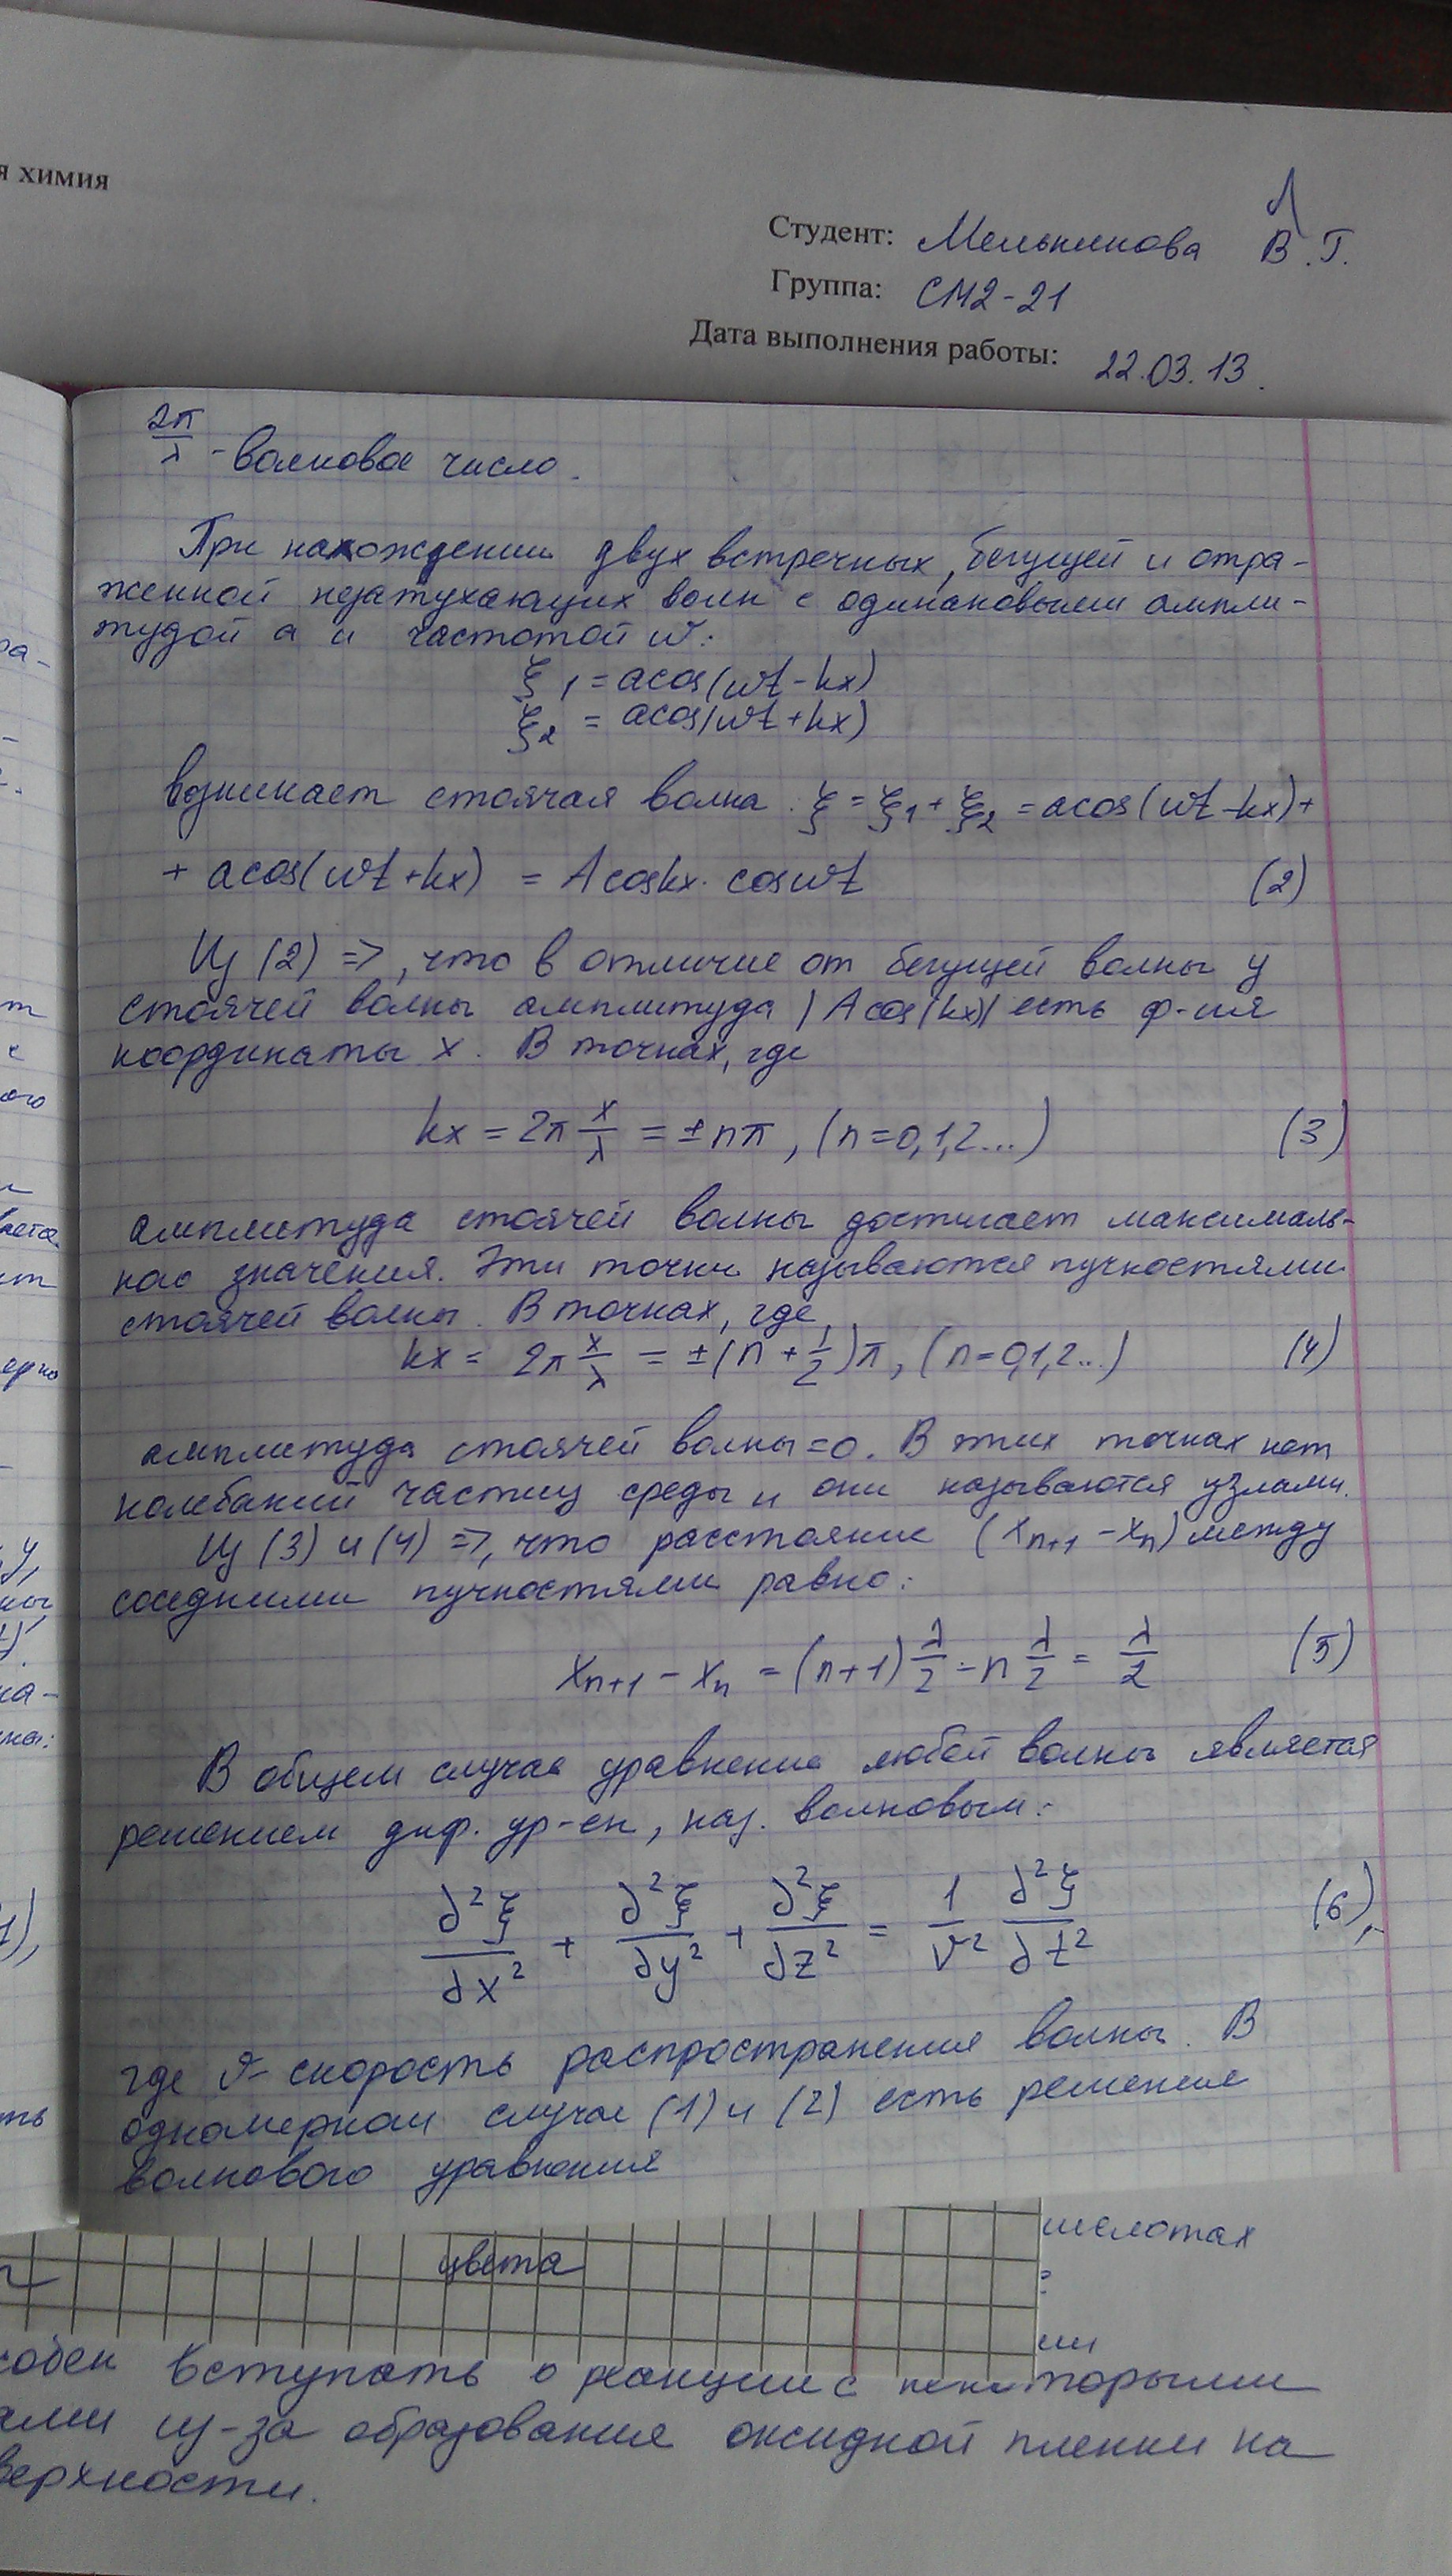 я химия
Студент: Мельникова В.Г.
Группа: СМ2-21
Дата выполнения работы: 22.03.13.
2π/λ - волновое число.
При нахождении двух встречных, бегущей и отра-
женной незатухающих волн с одинаковыми ампли-
тудой a и частотой ω:
ξ₁ = acos(ωt - kx)
ξ₂ = acos(ωt + kx)
возникает стоячая волна. ξ = ξ₁ + ξ₂ = acos(ωt - kx) +
+ acos(ωt + kx) = Acoskx · cosωt (2)
Из (2) =>, что в отличие от бегущей волны у
стоячей волны амплитуда |Acos(kx)| есть ф-ия
координаты x. В точках, где
kx = 2π x/λ = ±nπ, (n=0,1,2...) (3)
амплитуда стоячей волны достигает максималь-
ное значения. Эти точки называются пучностями
стоячей волны. В точках, где
kx = 2π x/λ = ±(n + 1/2)π, (n=0,1,2...) (4)
амплитуда стоячей волны=0. В этих точках нет
колебаний частиц среды и они называются узлами.
Из (3) и (4) =>, что расстояние (xₙ₊₁ - xₙ) между
соседними пучностями равно:
xₙ₊₁ - xₙ = (n+1) λ/2 - n λ/2 = λ/2 (5)
В общем случае уравнение любой волны является
решением диф. ур-ен, наз. волновым:
∂²ξ/∂x² + ∂²ξ/∂y² + ∂²ξ/∂z² = 1/v² ∂²ξ/∂t² (6),
где v - скорость распространения волны. В
одномерном случае (1) и (2) есть решение
волнового уравнения
цвета
кислотах
собен вступать в реакции с некоторыми
ами из-за образования оксидной пленки на
верхности.